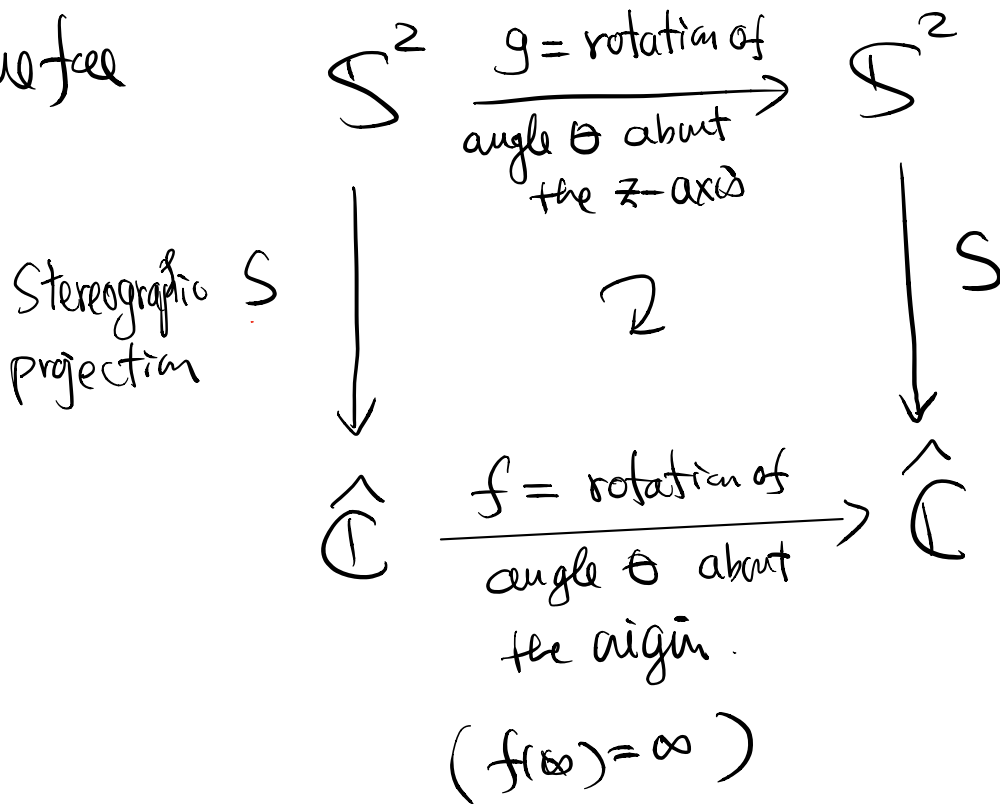 S² g = rotation of S²
angle θ about
the z-axis
Stereographic S
projection
S
Ĉ f = rotation of Ĉ
angle θ about
the origin.
(f(∞) = ∞)